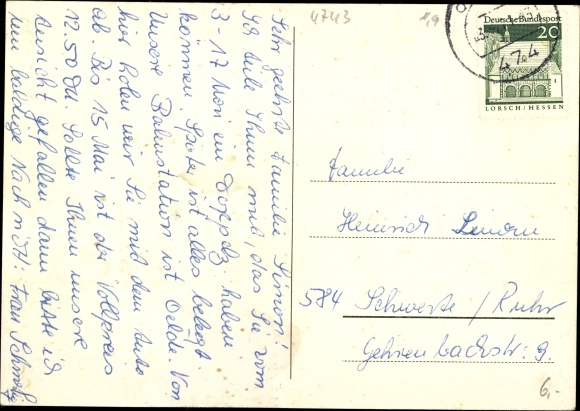 4743
1,9
Deutsche Bundespost
20
LORSCH/HESSEN
474
Sehr geehrte Familie Simon!
Ich teile Ihnen mit, das Sie vom
3-17 Mai ein Doppelz. haben
können. Später ist alles belegt.
Unsere Bahnstation ist Oelde. Von
hier holen wir Sie mit dem Auto
ab. Bis 15 Mai ist der Vollpreis
12.50 DM. Sollte Ihnen unsere
Ansicht gefallen dann bitte ich
um baldige Nachricht: Frau
Familie
Heinrich
584 Schwerte / Ruhr
Gehrenbachstr. 9.
6,-